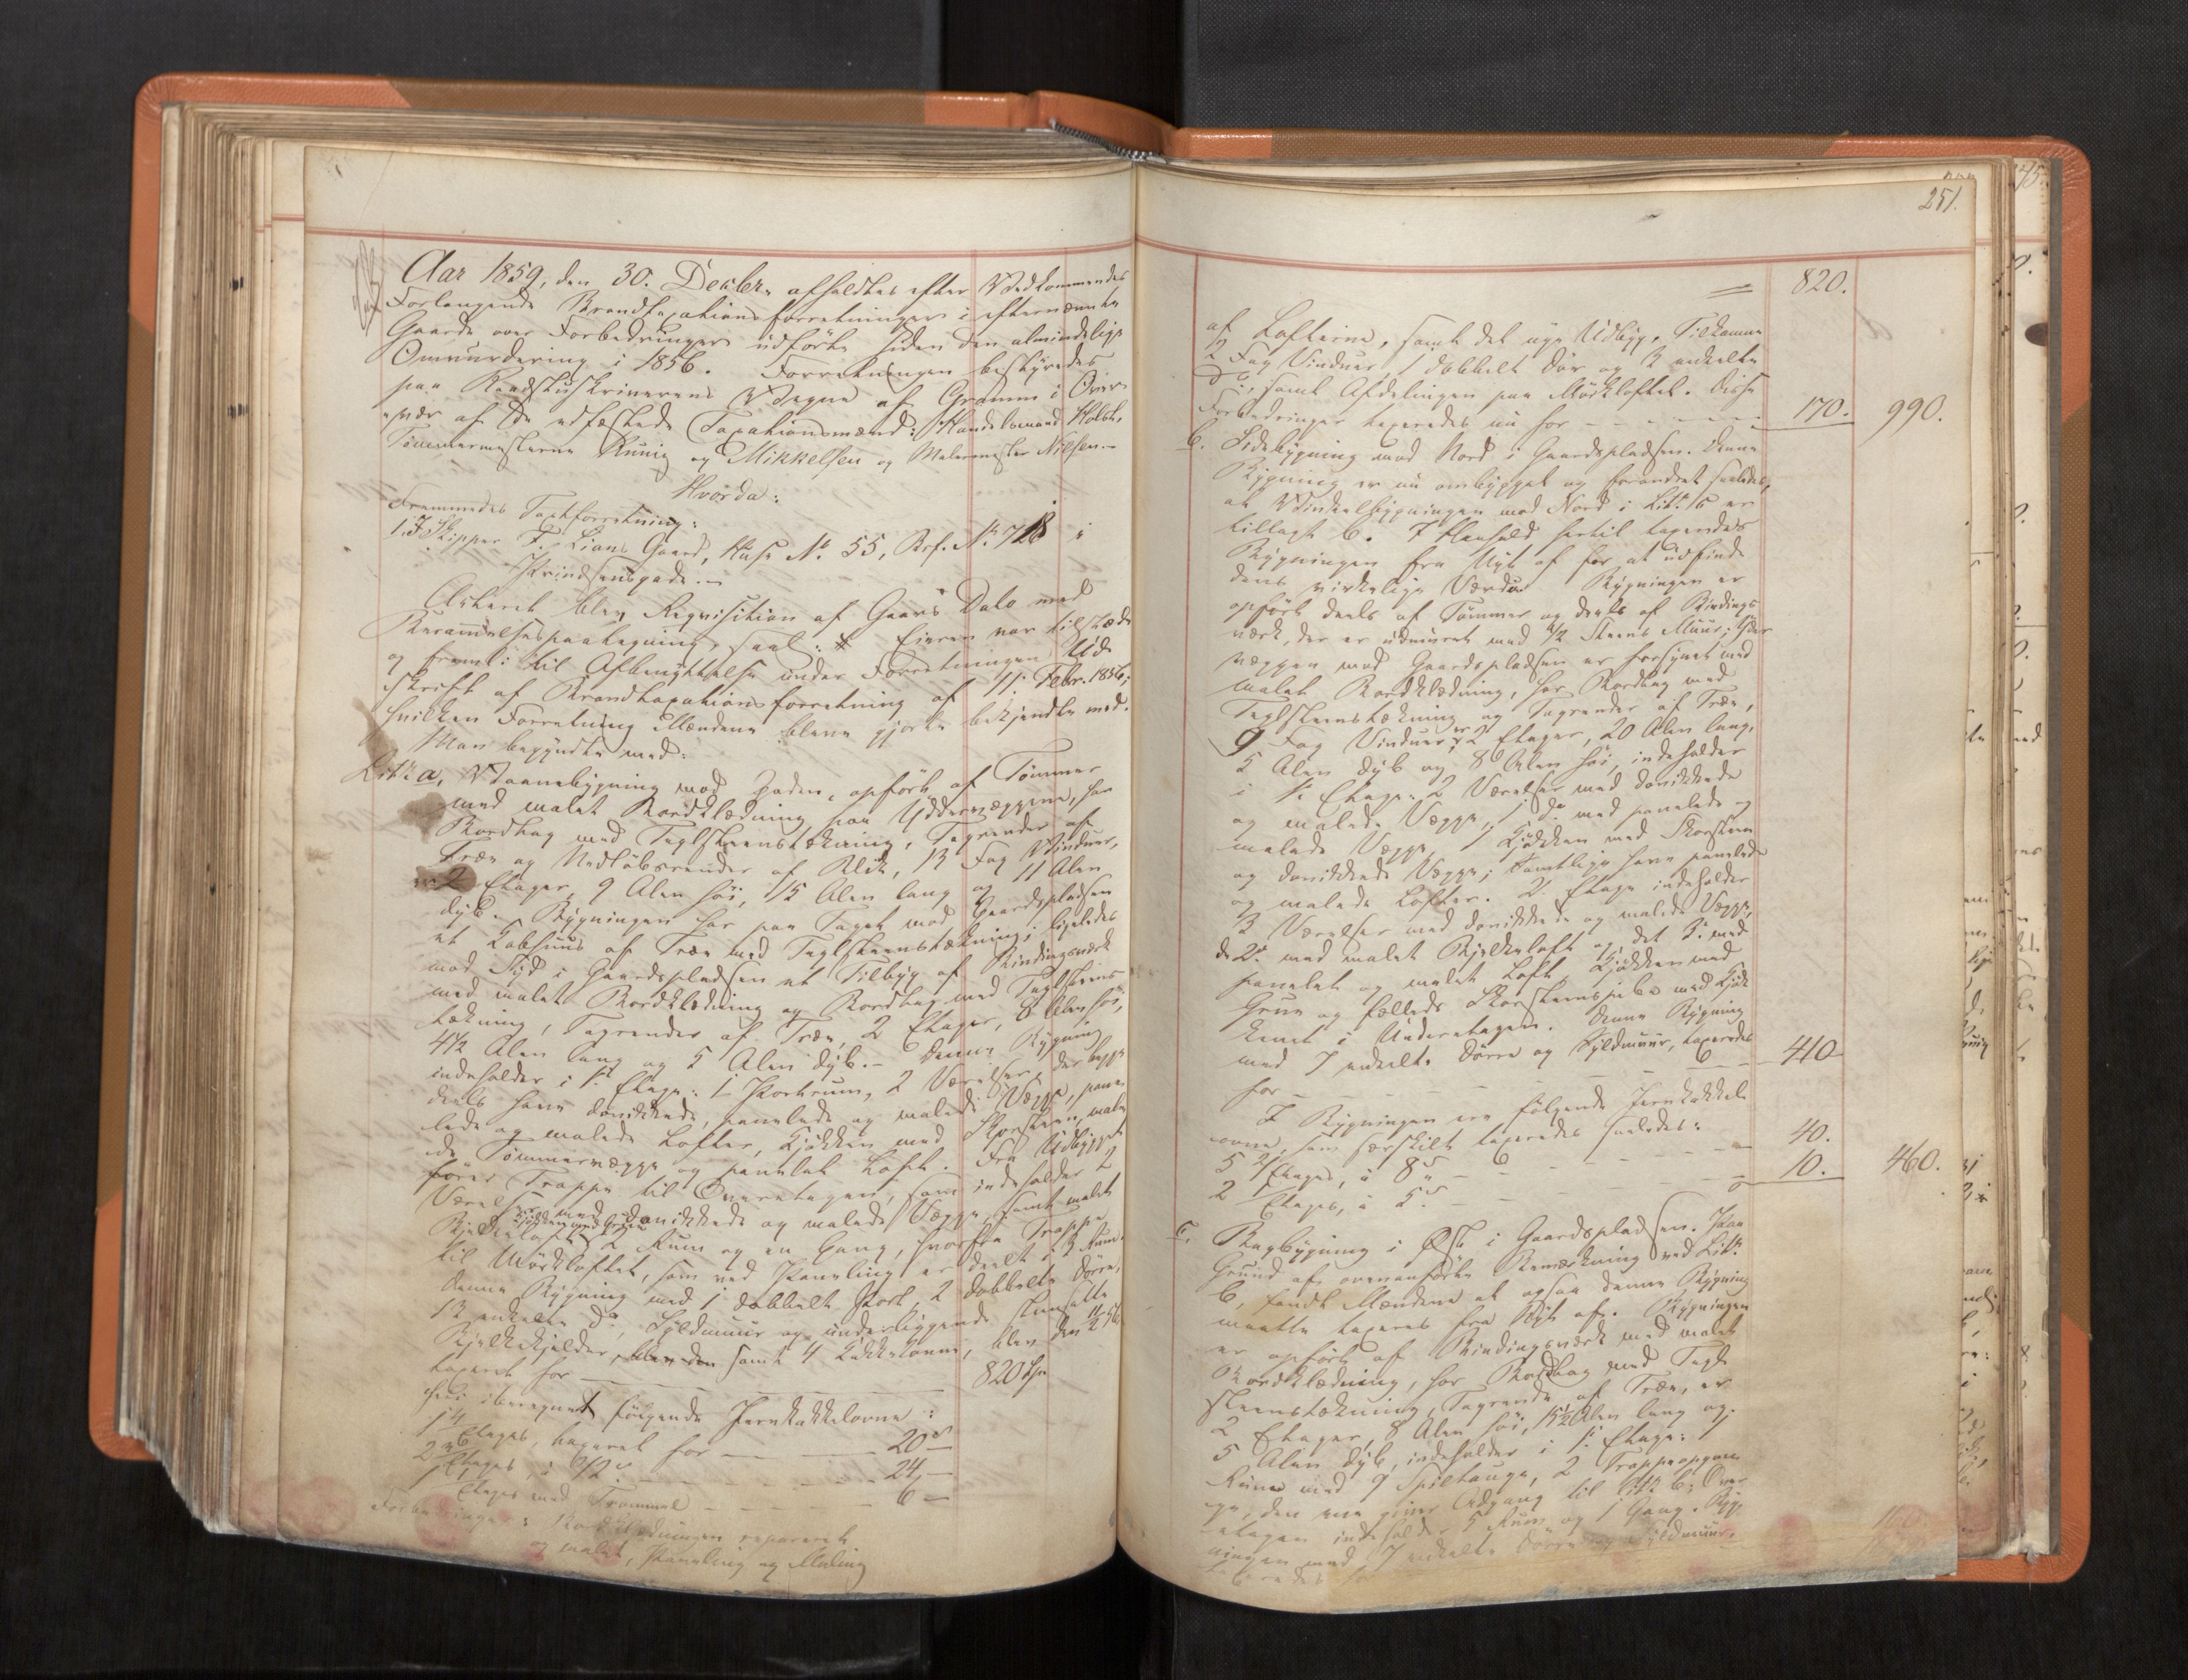 Aar 1859, den 30. Decbr. afholdtes efter Vedkommendes
Forlangende Brandtaxationsforretninger i efternævnte
Gaarde over Forbedringer udførte siden den almindelige
Omvurdering i 1856. Forretningen bestyredes
paa Raadstuskriverens Vegne af Gramm i Over
vær af de edfæstede Taxationsmænd: Handelsmand Holst,
Tømmermesterne Rünig og Mikkelsen og Malermester Nilsen.
Hvorda:
Fremmedes Taxtforretning:
1. I Skipper F. Lians Gaard, Huse No. 55, Brf. No. 718 i
Prindsensgade.
Astheret blev Reqvisition af Gaars Dato med
Berammelsespaategning, saal: Eieren var tilstæde
og freml: til Afbenyttelse under Forretningen Ud-
skrift af Brandtaxationsforretning af 11. Febr. 1856,
hvilken Forretning Mændene bleve gjorte bekjendte med.
Man begyndte med:
Litr. a. Vaanebygning mod Gaden, opført af Tømmer
med malet Bordklædning paa Ydervæggene, har
Bordtag med Teglsteenstækning, Tagrender af
Træe og Nedløbsrender af Blik, 13 Fag Vinduer,
er 2 Etager, 9 Alen høi, 15 Alen lang og 11 Alen
dyb. Bygningen har paa Taget mod Gaardspladsen
et Kobhuus af Træe med Teglsteenstækning; ligeledes
mod Syd i Gaardspladsen et Tilbyg af Bindingsverk
med malet Bordklædning og Bordtag med Teglsteens-
tækning, Tagrender af Træe, 2 Etager, 8 Alen høi,
4½ Alen lang og 5 Alen dyb. Denne Bygning
indeholder i 1ste Etage: 1 Portrum, 2 Værelser, der begge
deels have donikkede, panelede og malede Vægge, pane-
lede og malede Lofter, Kjøkken med Skorsteen, male-
de Tømmervægge og panelet Loft. Fra Udbygget
fører Trappe til Overetagen, som indeholder 2
Værelser med donikkede og malede Vægge, samt malet
Bjelkeloft, Kjøkken med Gruve, 2 Rum og en Gang, hvorfra Trappe
til Mørkloftet, som ved Paneling er deelt i 3 Rum.
Denne Bygning med 1 dobbelt Port, 2 dobbelte Dørre,
13 enkelte do, Syldmuur og underliggende steensatte
Bjelkekjelder, samt 4 Kakkelovne, blev den 11/2 56
taxeret for 820 Spd
heri iberegnet følgende Jernkakkelovne:
1 4 Etages, taxeret for 20
2 3 Etages, à 12 24
1 1 Etages med Trommel 6
Forbedringer: Bordklædningen repareret
og malet, Paneling og Maling
251.
820.
af Lofterne, samt det nye Udbyg, Tilkomne
2 Fag Vinduer, 1 dobbelt Dør og 3 enkelte
do, samt Afdelingen paa Mørkloftet. Disse
Forbedringer taxeredes nu for 170. 990.
b. Sidebygning mod Nord i Gaardspladsen. Denne
Bygning er nu ombygget og forandret saaledes,
at Vinkelbygningen mod Nord i Litr. c er
tillagt b. I Henhold hertil taxeredes
Bygningen fra Nyt af for at udfinde
dens virkelige Værdie. Bygningen er
opført deels af Tømmer og deels af Bindings
værk, der er udmuret med ½ Steens Muur; Yder
væggen mod Gaardspladsen er forsynet med
malet Bordklædning, har Bordtag med
Teglsteenstækning og Tagrender af Træe,
9 Fag Vinduer, er 2 Etager, 20 Alen lang,
5 Alen dyb og 8 Alen høi, indeholder
i 1ste Etage: 2 Værelser med donikkede
og malede Vægge, 1 do med panelede og
malede Vægge, 1 Kjøkken med Skorsteen
og donikkede Vægge; samtlige have panelede
og malede Lofter. 2. Etage indeholder
3 Værelser med donikkede og malede Vægge,
de 2de med malet Bjelkeloft og det 3die med
panelet og malet Loft, Kjøkken med
Gruve og fælleds Skorsteenspibe med Kjøk
kenet i Underetagen. Denne Bygning
med 7 enkelte Dørre og Syldmuur, taxeredes
for 410
I Bygningen ere følgende Jernkakkel-
ovne, som særskilt taxeredes saaledes:
5 2 Etages, à 8 40.
2 1 Etages, à 5 10. 460.
c. Bagbygning i Øst i Gaardspladsen. Paa
Grund af ovenanførte Bemærkning ved Litr.
b, fandt Mændene at ogsaa denne Bygning
maatte taxeres fra Nyt af. Bygningen
er opført af Bindingsværk med malet
Bordklædning, har Bordtag med Tegl-
steenstækning, Tagrender af Træe, er
2 Etager, 8 Alen høi, 15½ Alen lang og
5 Alen dyb, indeholder i 1ste Etage: 1
Rum med 9 Spiltauge, 2 Trappeopgan-
ge, den ene giver Adgang til Litr. b; Over-
etagen indeholder 5 Rum og 1 Gang. Byg-
ningen med 7 enkelte Dørre og Syldmuur,
taxeredes for